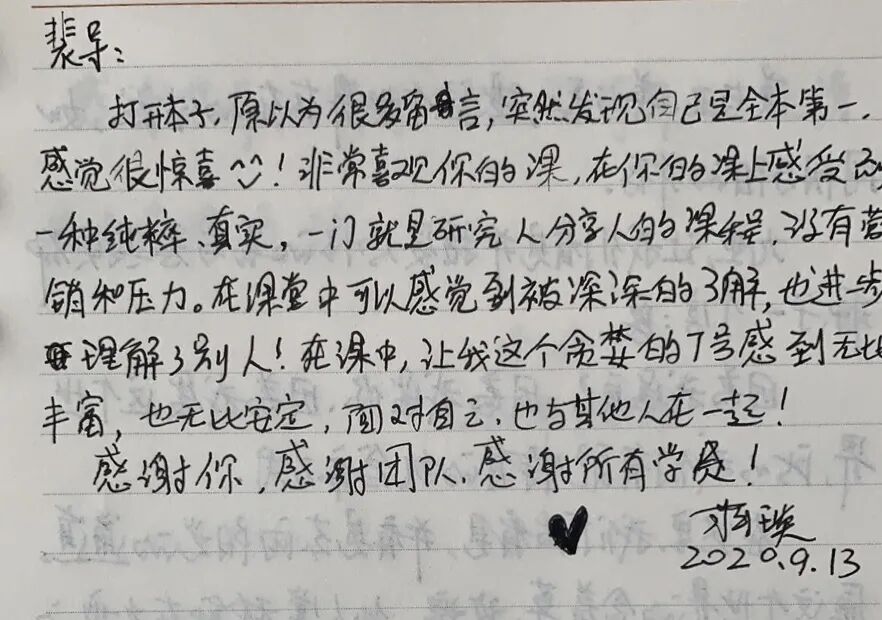 裴导：
打开本子，原以为很多留言，突然发现自己是全本第一，
感觉很惊喜^^！非常喜欢你的课，在你的课上感受到
一种纯粹、真实，一门就是研究人分享人的课程，没有营
销和压力。在课堂中可以感觉到被深深的了解，也进步
理解了别人！在课中，让我这个贪婪的7号感到无比
丰富，也无比安定，面对自己，也与其他人在一起！
感谢你，感谢团队，感谢所有学员！
♥
2020.9.13